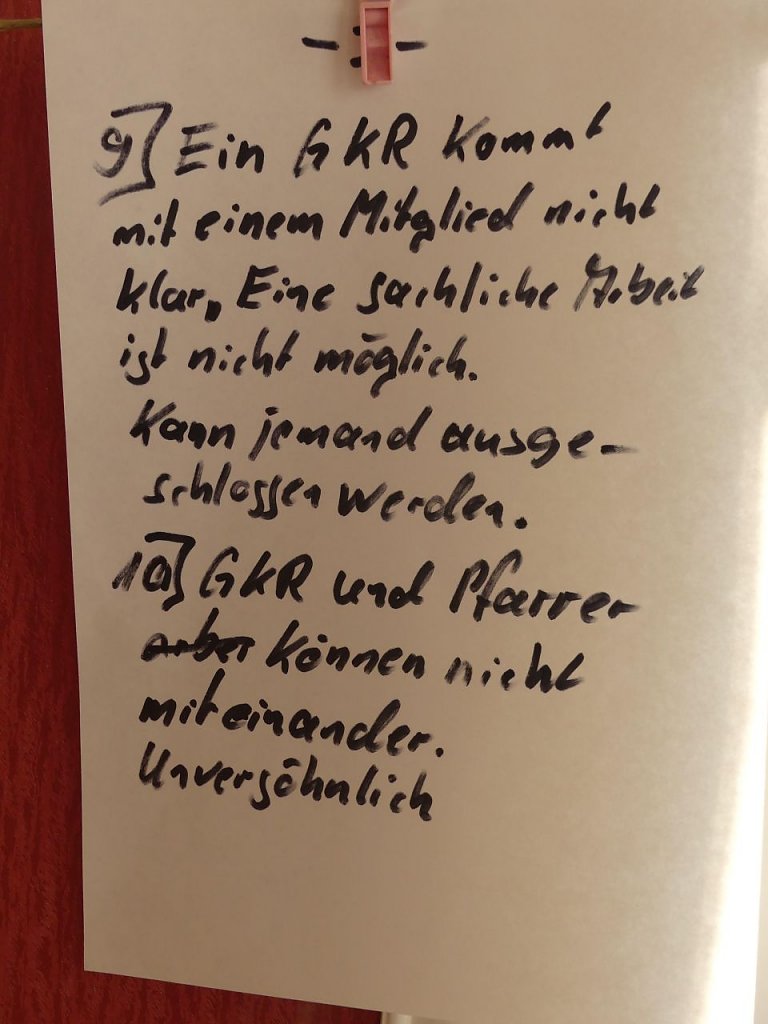 9] Ein GKR kommt
mit einem Mitglied nicht
klar, Eine sachliche Arbeit
ist nicht möglich.
Kann jemand ausge-
schlossen werden.
10] GKR und Pfarrer
können nicht
miteinander.
Unversöhnlich